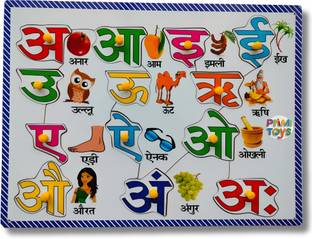 अ आ इ ई
अनार आम इमली ईख
उ ऊ ऋ
उल्लू ऊँट ऋषि
PRIMI TOYS
ए ऐ ओ
एड़ी ऐनक ओखली
औ अं अः
औरत अंगुर